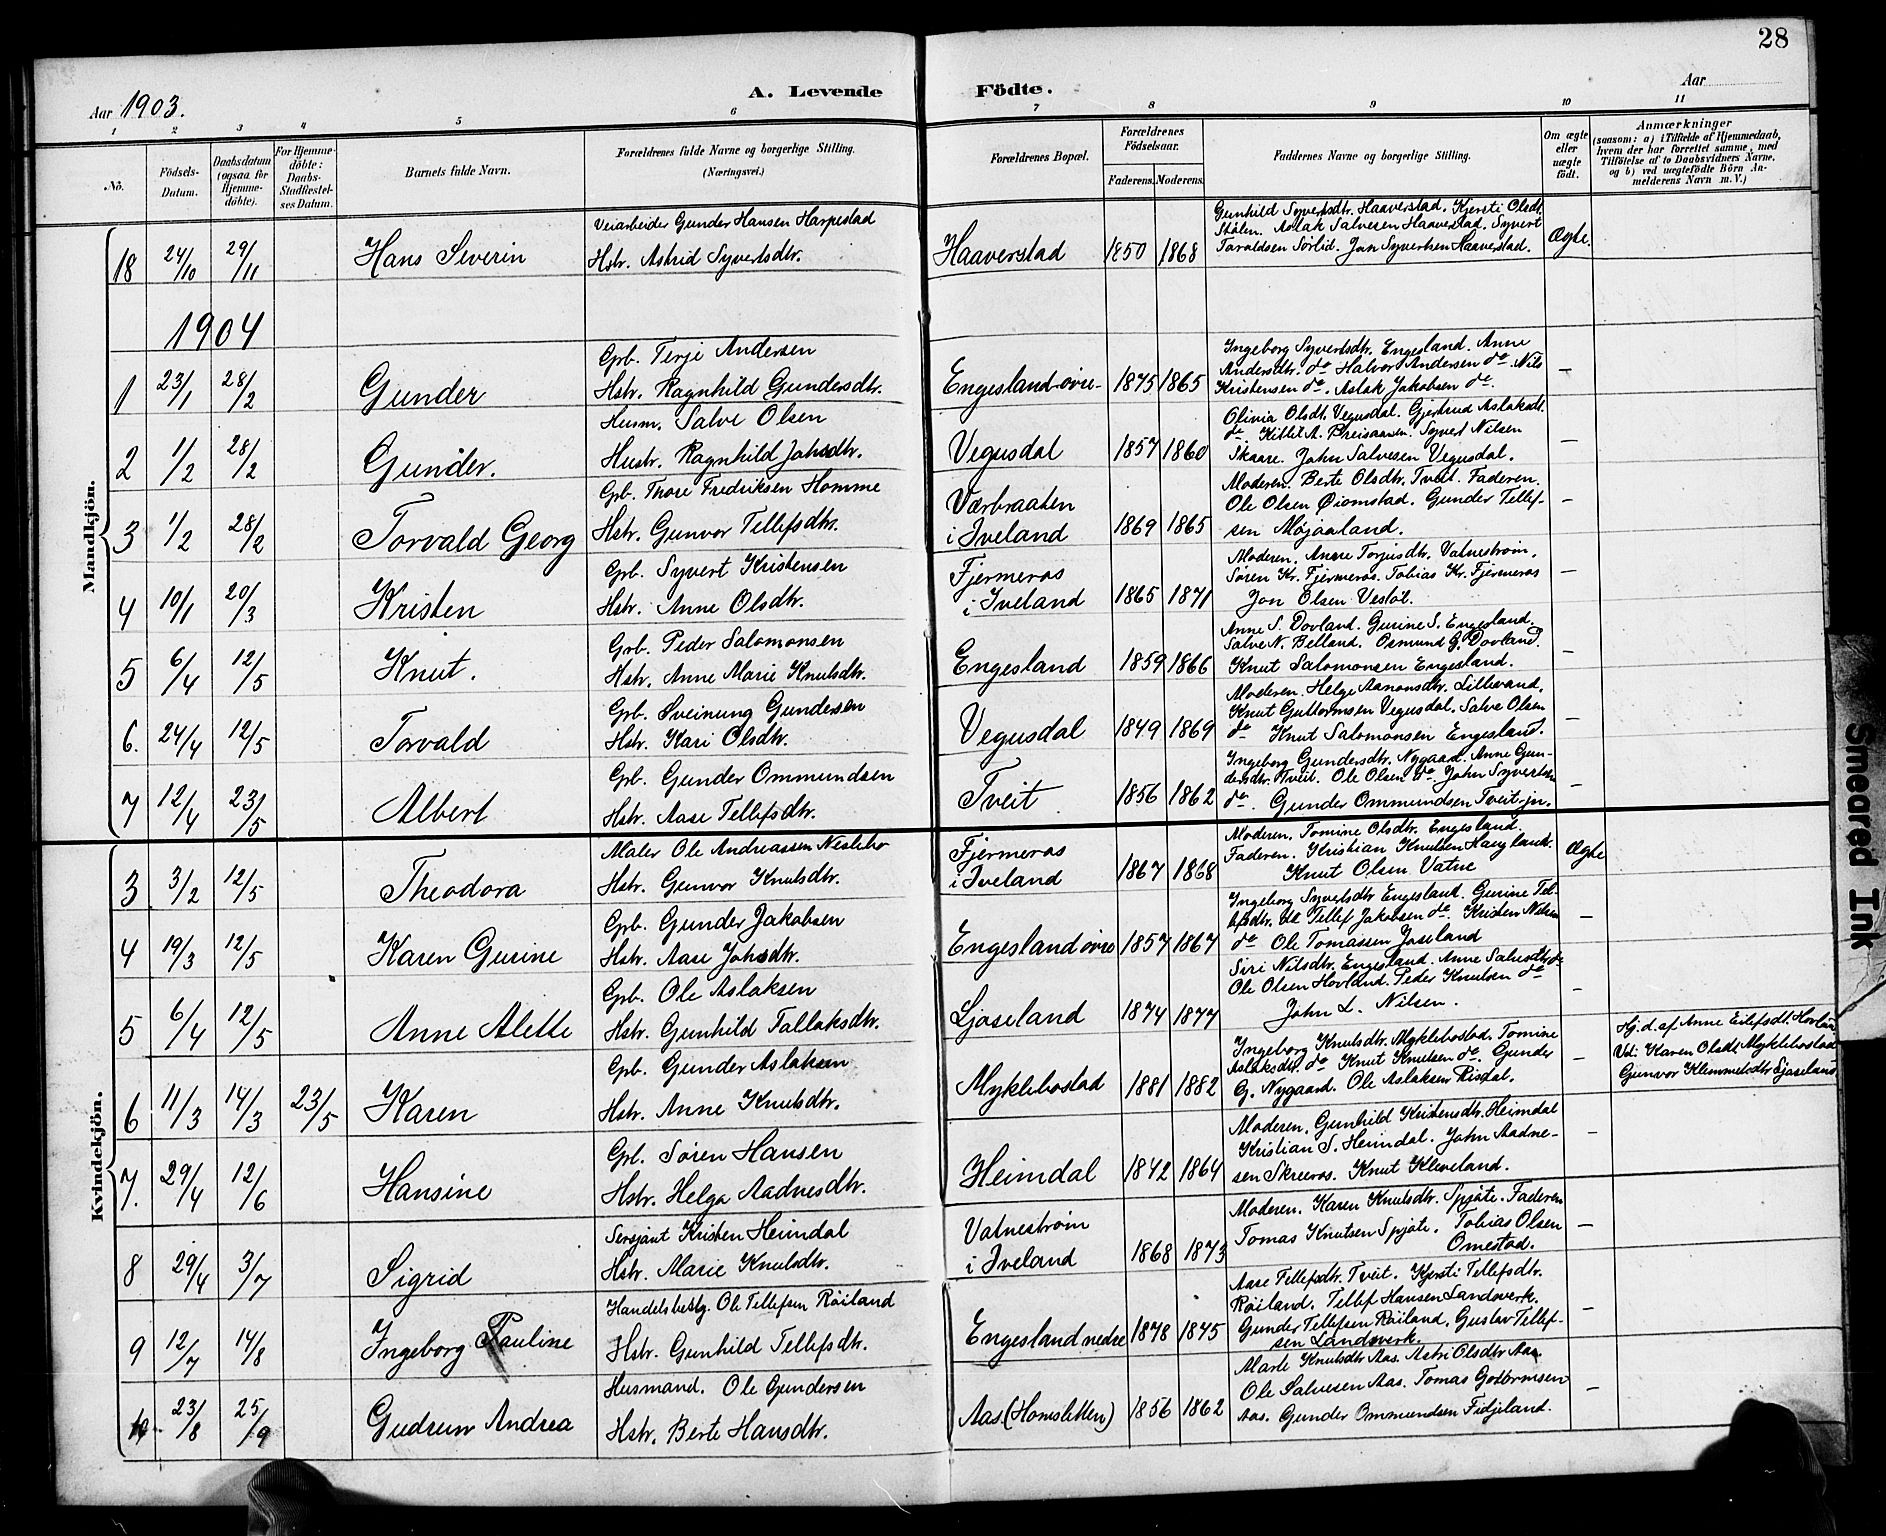 28
Aar 1903.
A. Levende Födte.
Aar
1 2 3 4 5 6 7 8 9 10 11
No.
Födsels-Datum.
Daabsdatum (ogsaa for Hjemme-döbte).
For Hjemme-döbte: Daabs-Stadfæstel-ses Datum.
Barnets fulde Navn.
Forældrenes fulde Navne og borgerlige Stilling. (Næringsvei.)
Forældrenes Bopæl.
Forældrenes Födselsaar.
Faderens. Moderens.
Faddernes Navne og borgerlige Stilling.
Om ægte eller uægte födt.
Anmærkninger
(saasom: a) i Tilfælde af Hjemmedaab, hvem der har forrettet samme, med Tilföielse af to Daabsvidners Navne, og b) ved uægtefödte Börn An-melderens Navn m. V.)
Mandkjön.
18 24/10 29/11 Hans Severin
Veiarbeider Gunder Hansen Harpestad
Hstr. Astrid Syvertsdtr.
Haaverstad 1850 1868
Gunhild Syvertsdtr. Haaverstad. Kjersti Olsdt.
Stölen. Aslak Salvesen Haaverstad. Syvert
Taraldsen Sörlid. Jon Syvertsen Haaverstad.
Ægte.
1904
1 23/1 28/2 Gunder
Grb. Terje Andersen
Hstr. Ragnhild Gundersdtr.
Engesland-övre- 1875 1865
Ingeborg Syvertsdtr. Engesland. Anne
Andersdtr. do Halvor Andersen do Nils
Kristensen do. Aslak Jakobsen do.
–
2 1/2 28/2 Gunder.
Husm. Salve Olsen
Hustr. Ragnhild Johsdtr.
Vegusdal 1857 1860
Olivia Olsdt. Vegusdal. Gjertrud Aslaksdt.
do. Kittil A. Syvert Nilsen
Skaare. John Salvesen Vegusdal.
–
3 1/2 28/2 Torvald Georg
Grb. Thore Fredriksen Homme
Hstr. Gunvor Tellefsdtr.
Værbraaten
i Iveland 1869 1865
Moderen. Berte Olsdtr. Tveit. Faderen.
Ole Olsen Øiomstad. Gunder Tellef-
sen Møjaaland.
–
4 10/1 20/3 Kristen
Grb. Syvert Kristensen
Hstr. Anne Olsdtr.
Fjermeros
i Iveland 1865 1871
Moderen. Anne Torjusdtr. Vatneström.
Sören Kr. Fjermeros. Tobias Kr. Fjermeros
Jon Olsen Vestöl.
–
5 6/4 12/5 Knut.
Grb. Peder Salomonsen
Hstr. Anne Marie Knutsdtr.
Engesland 1859 1866
Anne S. Dovland. Gurine S. Engesland.
Salve N. Belland. Osmund G. Dovland.
Knut Salomonsen Engesland.
–
6. 24/4 12/5 Torvald
Grb. Sveinung Gundersen
Hstr. Kari Olsdtr.
Vegusdal 1849 1869
Moderen. Helge Aanonsdtr. Lillevand.
Knut Guttormsen Vegusdal. Salve Olsen
do Knut Salomonsen Engesland.
–
7 12/4 23/5 Albert
Grb. Gunder Ommundsen
Hstr. Aase Tellefsdtr.
Tveit 1856 1862
Ingeborg Gundersdtr. Nygaard. Anne Gun-
dersdtr. Tveit. Ole Olsen do. John Syvertsen
do. Gunder Ommundsen Tveit-jn.
–
Kvindekjön.
3 3/2 12/5 Theodora
Maler Ole Andreassen Neslebo
Hstr. Gunvor Knutsdtr.
Fjermeros
i Iveland 1867 1868
Moderen. Tomine Olsdtr. Engesland.
Faderen. Kristian Knutsen Haugland.
Knut Olsen Vatne
Ægte
4 19/3 12/5 Karen Gurine
Grb. Gunder Jakobsen
Hstr. Aase Johsdtr.
Engesland övre 1857 1867
Ingeborg Syvertsdtr Engesland. Gurine Tel-
lefsdtr. do Tellef Jakobsen do. Kristen Nilsen
do Ole Tomassen Joseland
–
5 6/4 12/5 Anne Alette
Grb. Ole Aslaksen
Hstr. Gunhild Tallaksdtr.
Ljoseland 1874 1877
Siri Nilsdtr. Engesland. Anne Salvesdtr do
Ole Olsen Hovland. Peder Knutsen do
John L. Nilsen.
–
6 11/3 14/3 23/5 Karen
Grb. Gunder Aslaksen
Hstr. Anne Knutsdtr.
Myklebostad 1881 1882
Ingeborg Knutsdtr. Myklebostad. Tomine
Aslaksdtr. do Knut Knutsen do. Gunder
G. Nygaard. Ole Aslaksen Risdal.
–
Hj. d. af Anne Eilefsdt. Hovland
Vdr. Karen Olsdtr Myklebostad
Gunvor Klemmetsdtr Ljoseland
7. 29/4 12/6 Hansine
Grb. Sören Hansen
Hstr. Helga Aadnesdtr.
Heimdal 1842 1864
Moderen, Gunhild Kristensdtr. Heimdal
Kristian S. Heimdal. John Aadne-
sen Skreros. Knut Kleveland.
–
8 29/4 3/7 Sigrid
Sersjant Kristen Heimdal
Hstr. Marie Knutsdtr.
Vatneström
i Iveland 1868 1873
Moderen. Karen Knutsdtr. Spjöte. Faderen
Tomas Knutsen Spjöte. Tobias Olsen
Omestad.
–
9 12/7 14/8 Ingeborg Pauline
Handelsbestg. Ole Tellefsen Röiland
Hstr. Gunhild Tellefsdtr.
Engesland nedre 1878 1875
Aase Tellefsdtr. Tveit. Kjersti Tellefsdtr.
Röiland. Tellef Hansen Landverk.
Gunder Tellefsen Röiland. Gustav Tellef-
sen Landverk.
–
10 23/8 25/9 Gudrun Andrea
Husmand. Ole Gundersen
Hstr. Berte Hansdtr.
Aas (Homsletten) 1856 1862
Marte Knutsdtr Aas. Astri Olsdtr Aas
Ole Salvesen Aas. Tomas Gotormsen
Aas. Gunder Ommundsen Fidjeland.
–
Smeared Ink